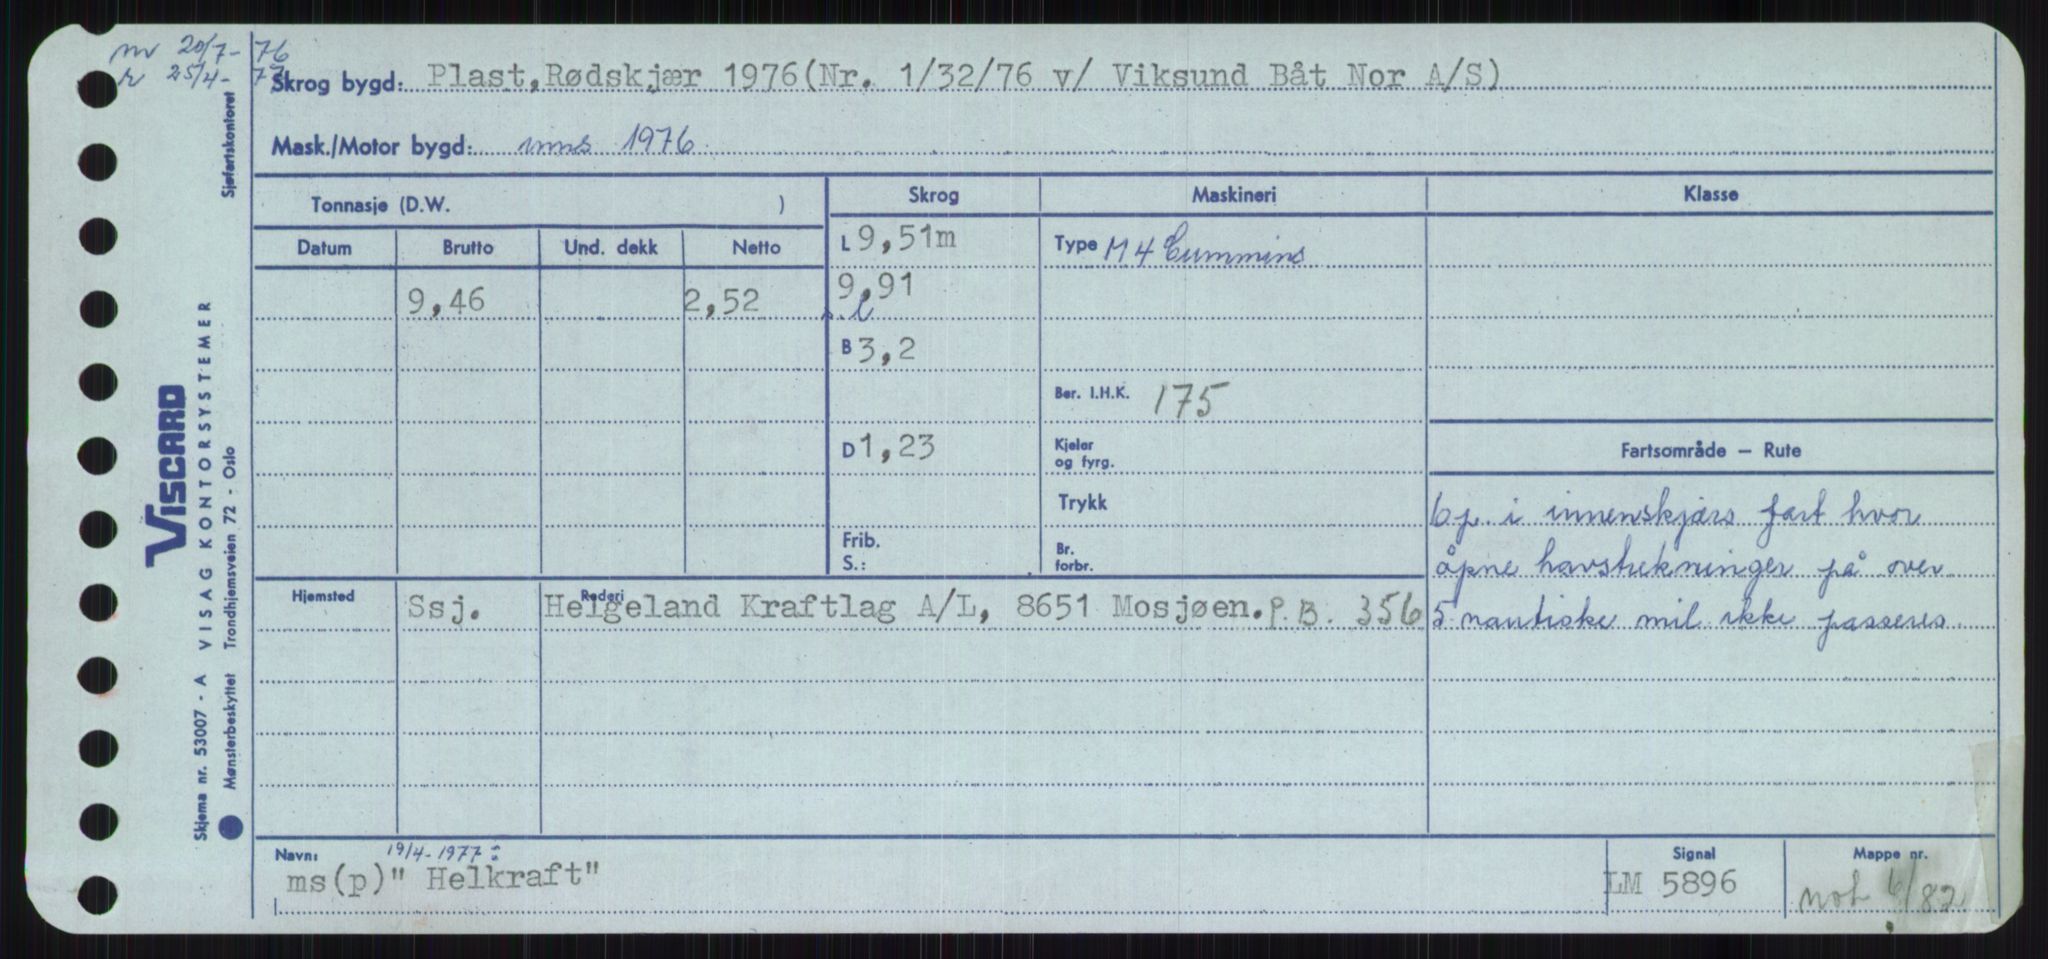 nv 20/7- 76
r 25/4- 77
Skrog bygd: Plast,Rødskjær 1976(Nr. 1/32/76 v/ Viksund Båt Nor A/S)
Mask./Motor bygd: 1976
Tonnasje (D.W. )
Skrog Maskineri Klasse
Datum Brutto Und. dekk Netto
L 9,51m
Type M4 Cummins
9,46 2,52
9,91
B 3,2
Ber. I.H.K. 175
D 1,23
Kjeler
og fyrg.
Trykk
Frib.
S.:
Br.
forbr.
Fartsområde – Rute
6 p. i innenskjærs fart hvor
åpne havstrekninger på over
5 nautiske mil ikke passeres
Hjemsted Ssj. Rederi Helgeland Kraftlag A/L, 8651 Mosjøen. P.B. 356
Navn: 19/4-1977:
ms(p)" Helkraft"
Signal
LM 5896
Mappe nr.
6/82
Sjøfartskontoret
VISCARD
VISAG KONTORSYSTEMER
Skjema nr. 53007 - A
Mønsterbeskyttet Trondhjemsveien 72 - Oslo